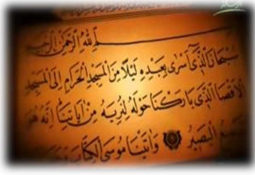 بسم الله الرحمن الرحيم
سبحان الذي أسرى بعبده ليلا من المسجد الحرام إلى المسجد
الأقصا الذي باركنا حوله لنريه من آياتنا إنه هو
البصير وآتينا موسى الكتاب